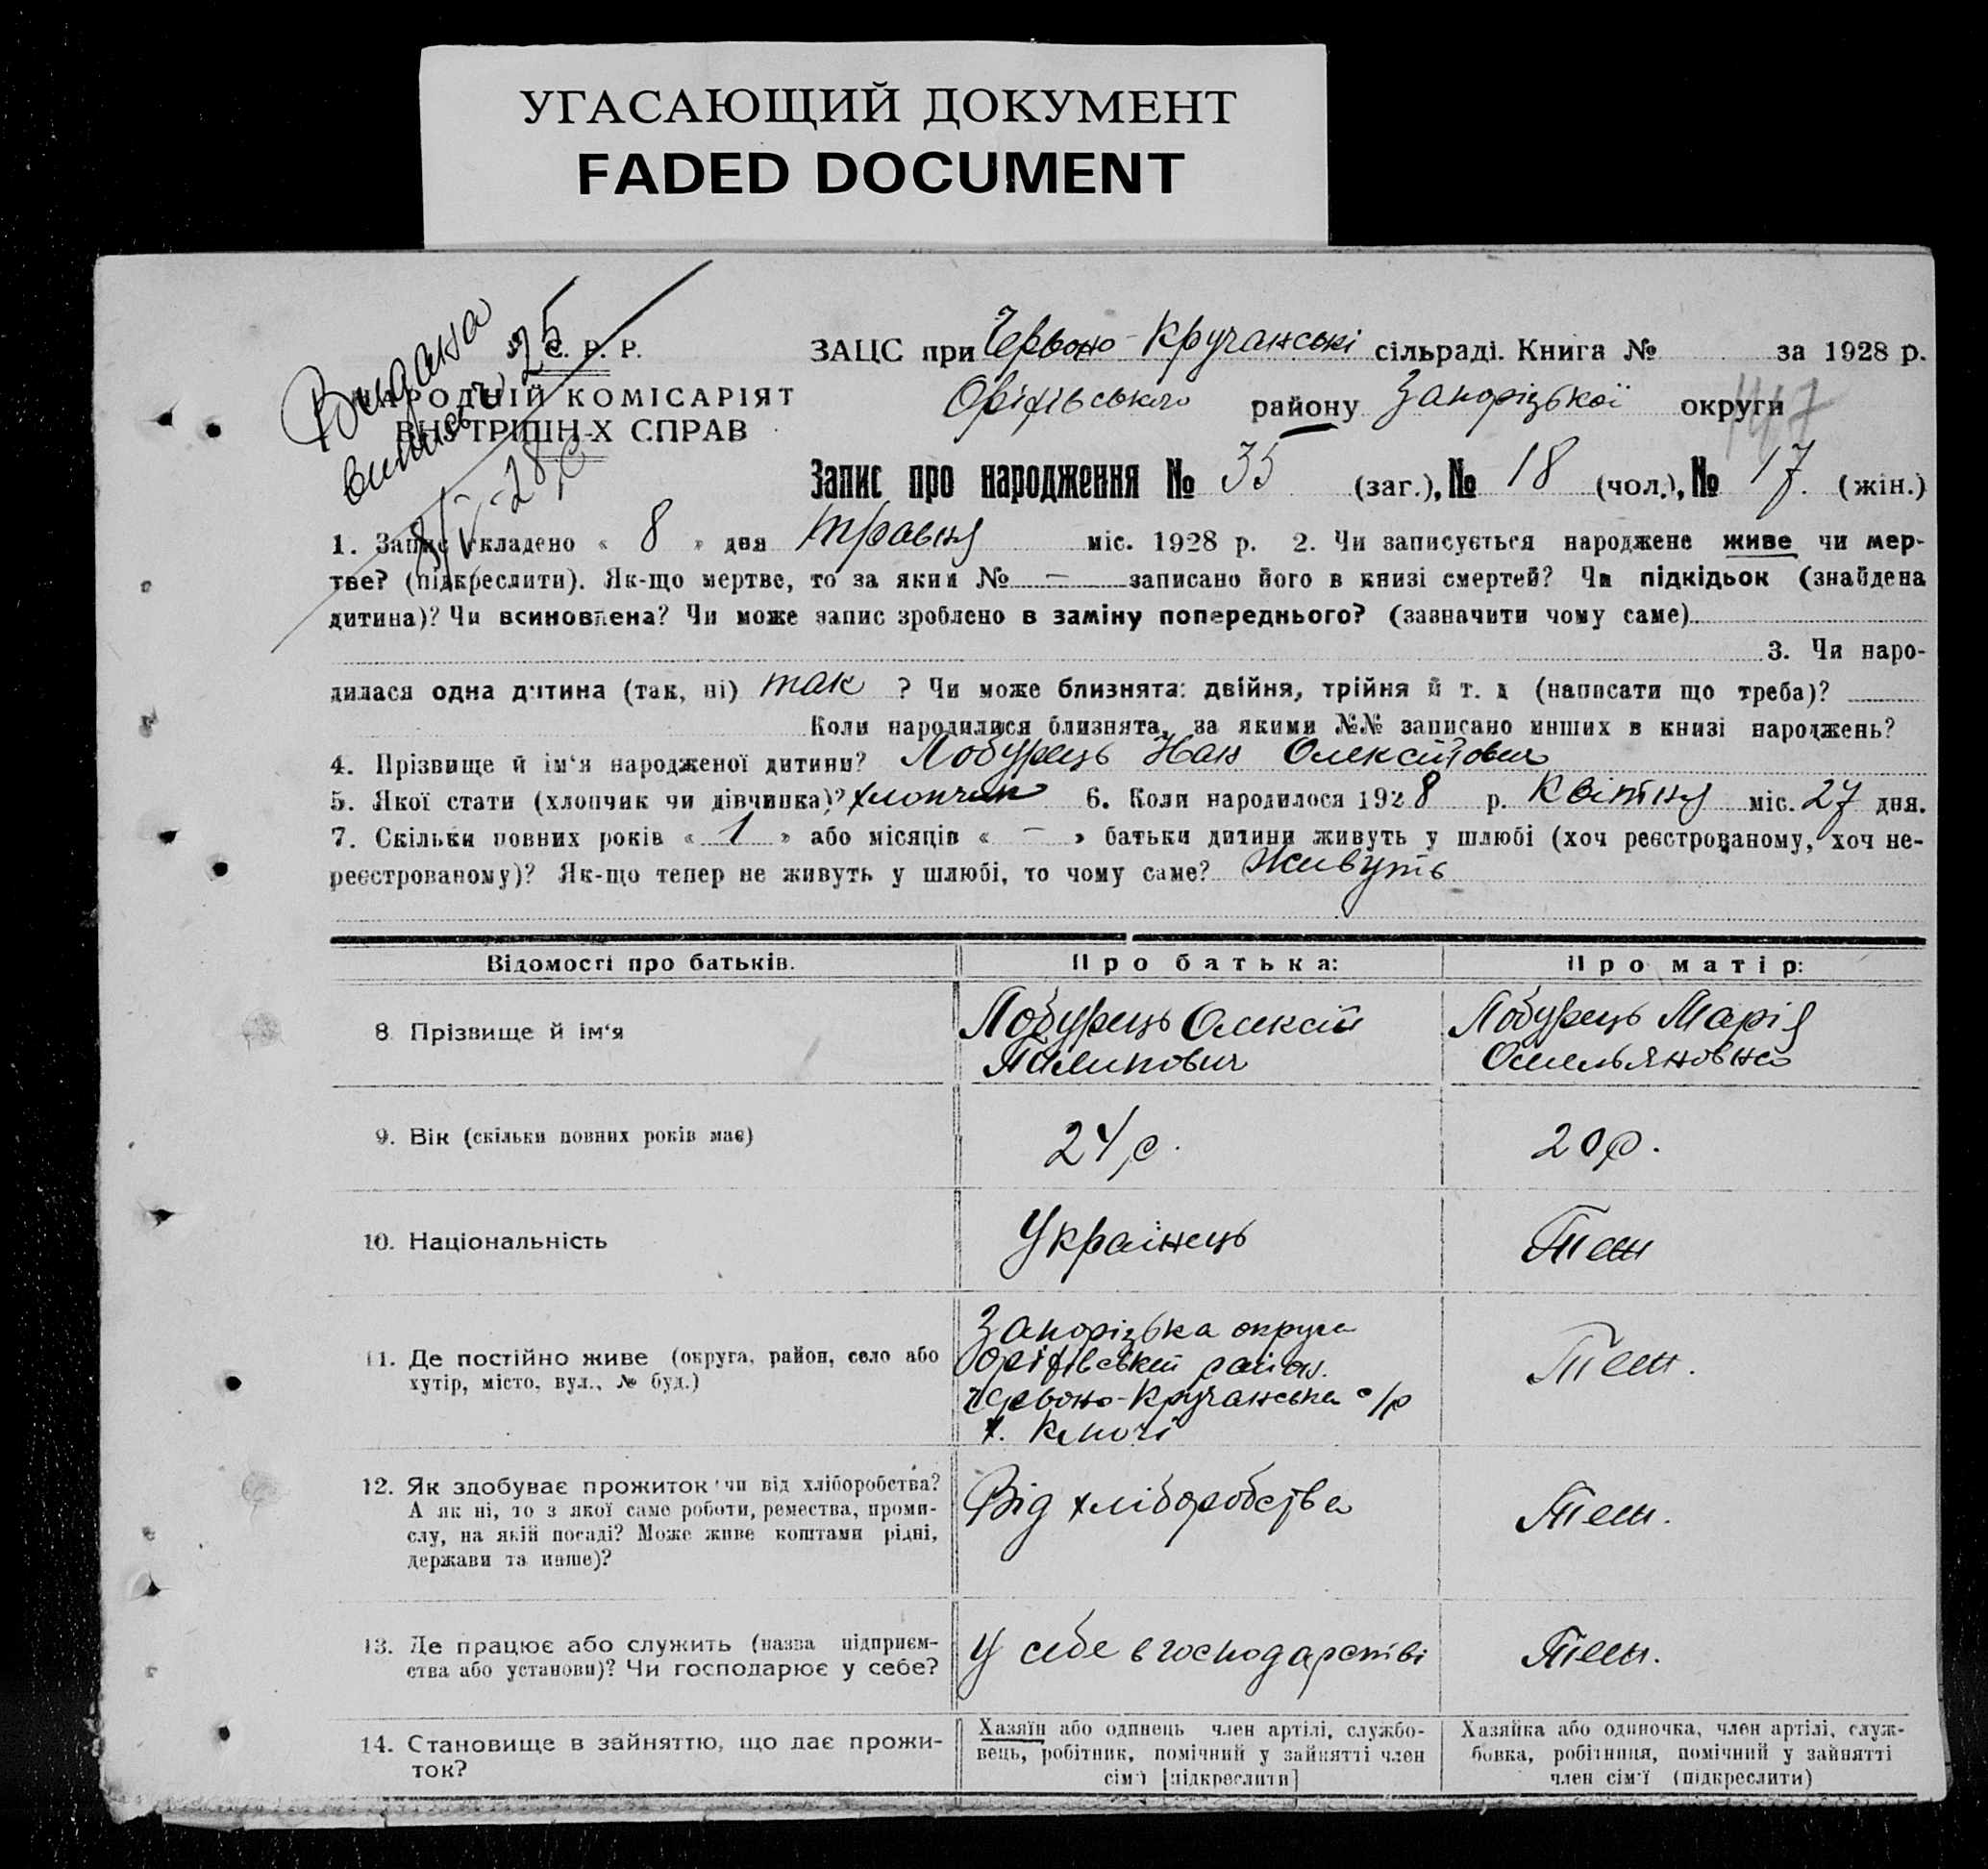 УГАСАЮЩИЙ ДОКУМЕНТ
FADED DOCUMENT
Видана
выпись 25
8/V-28 р
У. С. Р. Р.
НАРОДНІЙ КОМІСАРІЯТ
ВНУТРІШН-Х СПРАВ
ЗАЦС при Червоно-Кручанські сільраді. Книга № за 1928 р.
Оріхівського району Запорізької округи
147
Запис про народження № 35 (заг.), № 18 (чол.), № 17. (жін.)
1. Запис складено « 8 » дня травня міс. 1928 р. 2. Чи записується народжене живе чи мер-
тве? (підкреслити). Як-що мертве, то за яким № — записано його в книзі смертей? Чи підкідьок (знайдена
дитина)? Чи всиновлена? Чи може запис зроблено в заміну попереднього? (зазначити чому саме)
3. Чи наро-
дилася одна дитина (так, ні) так ? Чи може близнята: двійня, трійня й т. д (написати що треба)?
Коли народилися близнята, за якими №№ записано инших в книзі народжень?
4. Прізвище й ім'я народженої дитини? Лобурець Іван Олексійович
5. Якої стати (хлопчик чи дівчинка)? хлопчик 6. Коли народилося 1928 р. Квітня міс. 27 дня.
7. Скільки повних років « 1 » або місяців « — » батьки дитини живуть у шлюбі (хоч реєстрованому, хоч не-
реєстрованому)? Як-що тепер не живуть у шлюбі, то чому саме? Живуть
Відомості про батьків. Про батька: Про матір:
8 Прізвище й ім'я
Лобурець Олексій
Пилипович
Лобурець Марія
Омельяновна
9. Вік (скільки повних років має) 24 р. 20 р.
10. Національність Українець Теж
11. Де постійно живе (округа, район, село або
хутір, місто, вул., № буд.)
Запорізька округа
Оріхівський район.
Червоно-Кручанська с/р
х. Ключі
Теж.
12. Як здобуває прожиток чи від хліборобства?
А як ні, то з якої саме роботи, ремества, проми-
слу, на якій посаді? Може живе коштами рідні,
держави та инше)?
Від хліборобства
Теж.
13. Де працює або служить (назва підприєм-
ства або установи)? Чи господарює у себе?
У себе в господарстві
Теж.
14. Становище в зайняттю, що дає прожи-
ток?
Хазяїн або одинець член артілі, службо-
вець, робітник, помічний у зайнятті член
сім'ї [підкреслити]
Хазяйка або одиночка, член артілі, служ-
бовка, робітниця, помічний у зайнятті
член сім'ї (підкреслити)